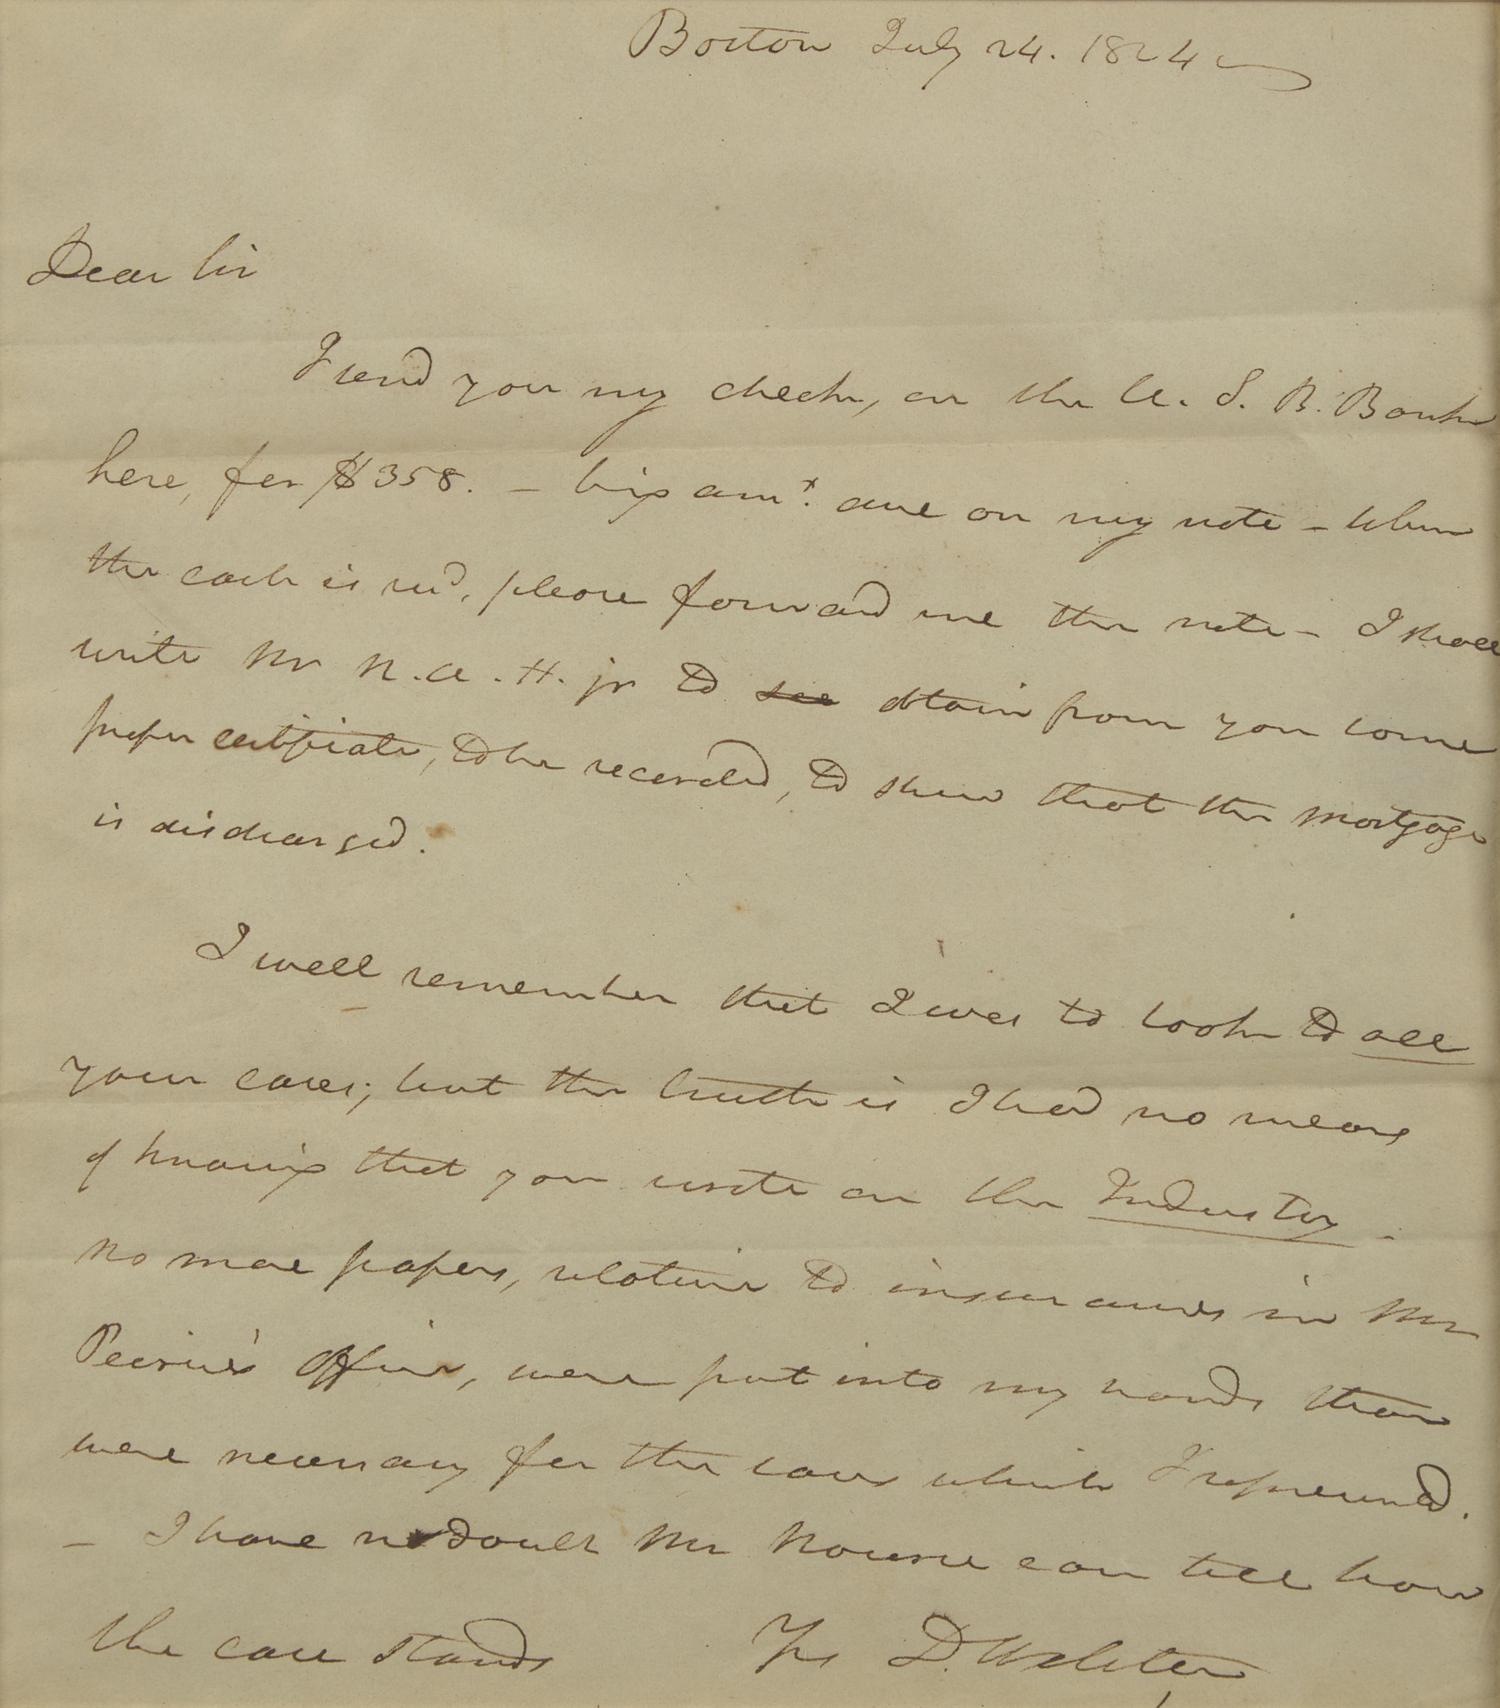 Boston July 24. 1824
Dear Sir
I send you my check, on the U. S. B. Bank
here, for $358. – being amt. due on my note – When
the cash is recd, please forward me the note – I shall
write Mr N. A. H. jr to see obtain from you some
proper certificate, to be recorded, to shew that the mortgage
is discharged.
I well remember that I was to look to all
your cases; but the truth is I had no means
of knowing that you wrote on the Industry –
No more papers, relative to insurances in Mr
office, were put into my hands than
were necessary for the cases which I represented.
– I have no doubt Mr Nourse can tell how
the case stands Yrs D. Webster